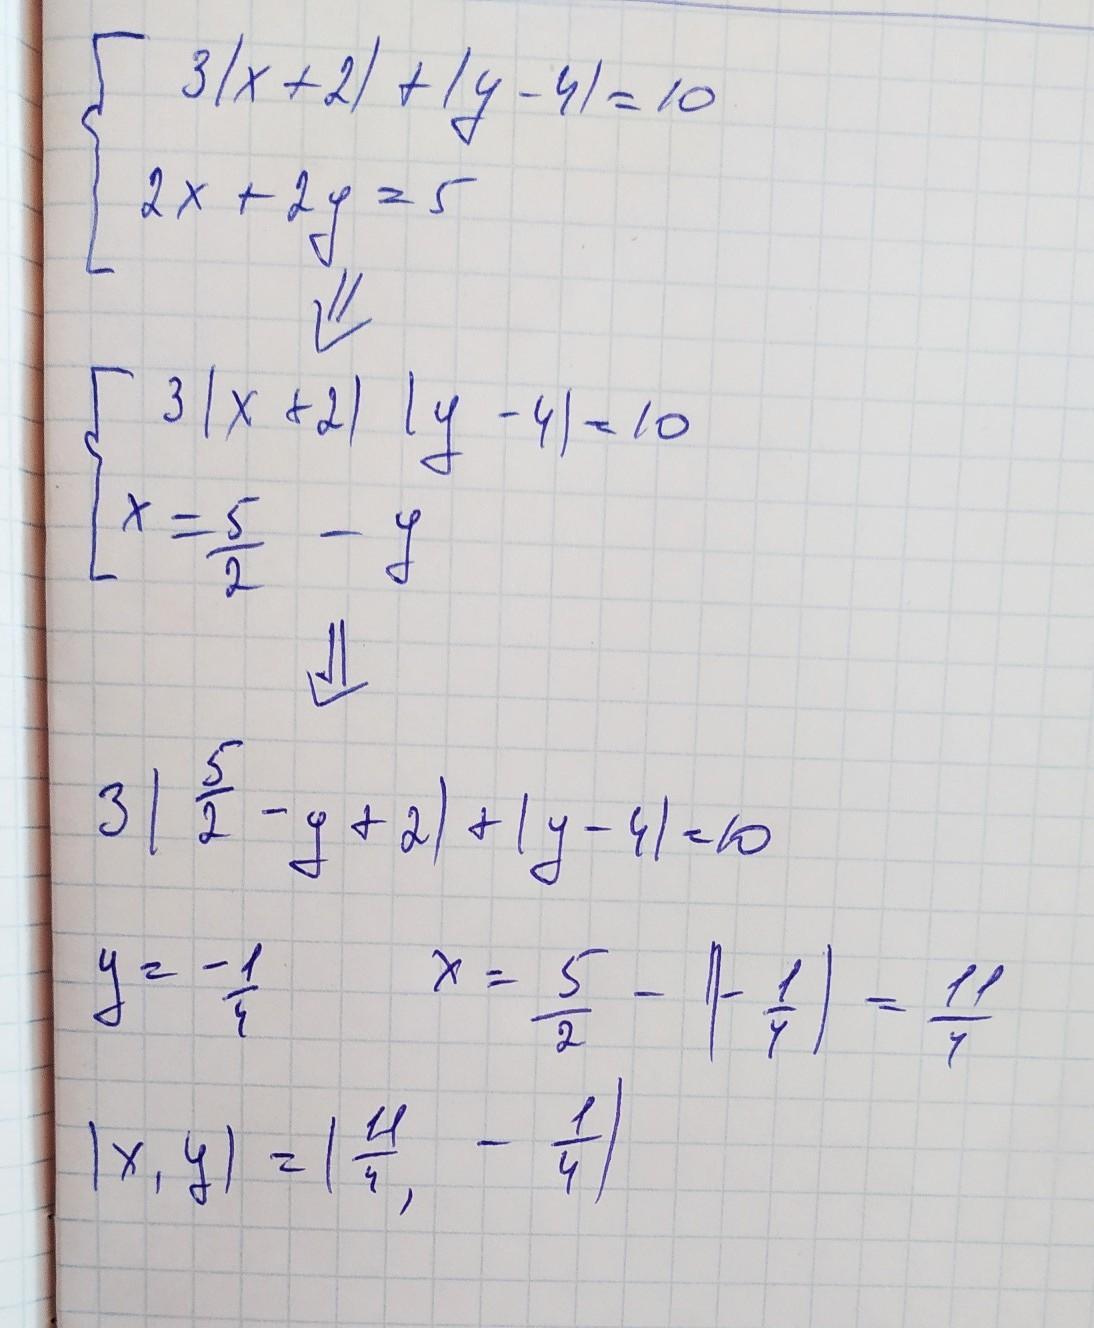 3|x+2| + |y-4| = 10
2x + 2y = 5
⇓
3|x+2| |y-4| = 10
x = 5/2 - y
⇓
3|5/2 - y + 2| + |y-4| = 10
y = -1/4 x = 5/2 - |-1/4| = 11/4
|x, y| = |11/4, -1/4|